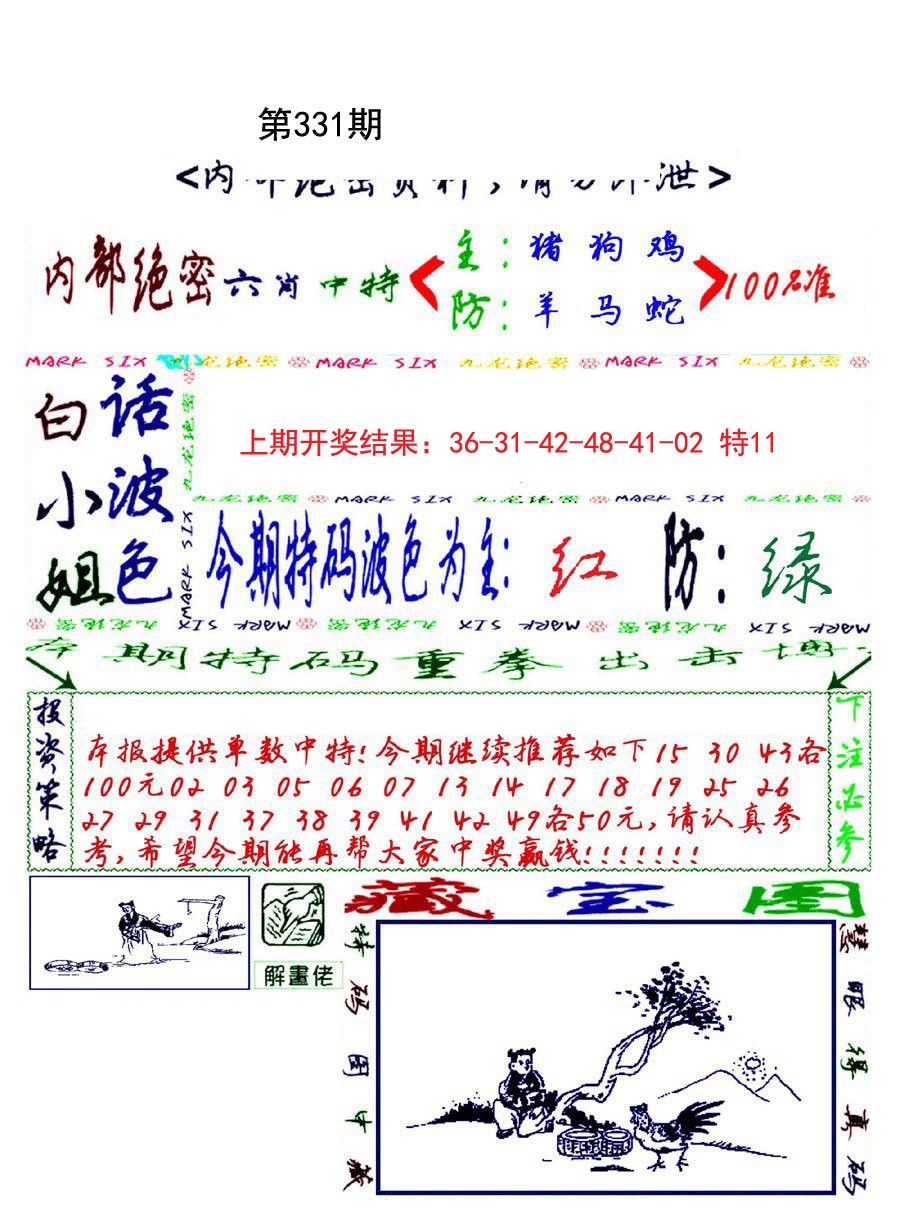 第331期
<内部绝密资料,请勿外泄>
内部绝密六肖中特
主:猪狗鸡
防:羊马蛇
100%准
MARK SIX 九龙绝密 MARK SIX 九龙绝密 MARK SIX 九龙绝密
白话
小波
姐色
九龙绝密
MARK SIX
上期开奖结果：36-31-42-48-41-02 特11
九龙绝密 MARK SIX 九龙绝密 MARK SIX 九龙绝密
今期特码波色为主:红 防:绿
九龙绝密 MARK SIX 九龙绝密 MARK SIX 九龙绝密 MARK SIX
本期特码重拳出击博
投资策略
本报提供单数中特!今期继续推荐如下15 30 43各
100元02 03 05 06 07 13 14 17 18 19 25 26
27 29 31 37 38 39 41 42 49各50元,请认真参
考,希望今期能再帮大家中奖赢钱!!!!!!!
下注必参
解畫佬
藏宝图
特码图中藏
慧眼得真码